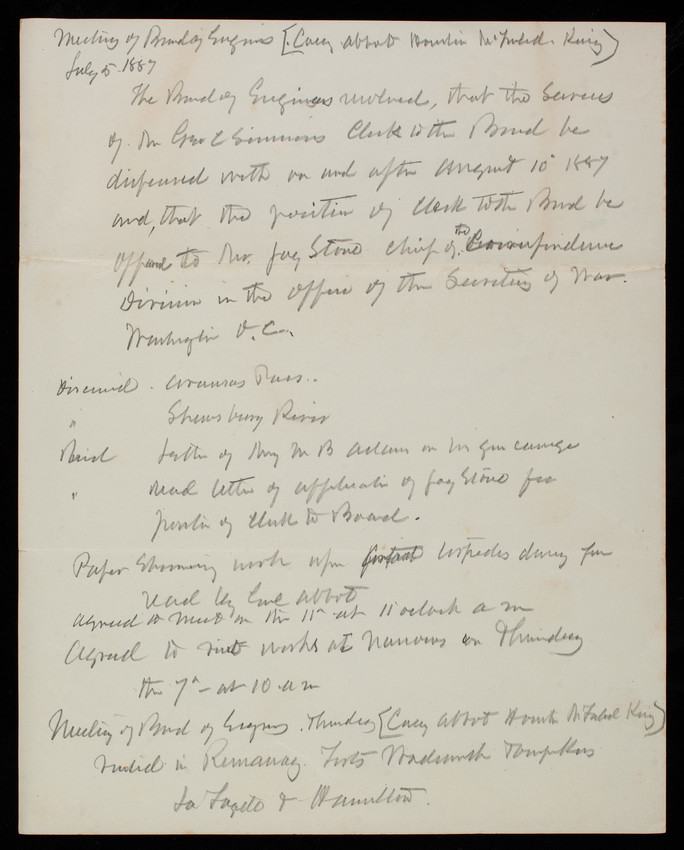 Meeting of Board of Engineers [Casey Abbot Houston McFarland King]
July 5 1887
The Board of Engineers resolved, that the services
of Mr Geo E Simmons Clerk to the Board be
dispensed with on and after August 10 1887
and, that the position of Clerk to the Board be
offered to Mr. Jas Stone chief of the Correspondence
Division in the office of the Secretary of War.
Washington D.C.
Discussed. Aransas Pass..
" Shrewsbury River
Read letter of M B Adams on his gun carriage
" read letter of application of Jas Stone for
position of Clerk to Board.
Paper showing work upon torpedos during
read by Col Abbot
Agreed to meet on the 11th at 11 oclock a m
Agreed to visit works at Narrows on Thursday
the 7th - at 10 a m
Meeting of Board of Engineers. Thursday [Casey Abbot Houston McFarland King]
visited in Forts Wadsworth Tompkins
La Fayette & Hamilton.